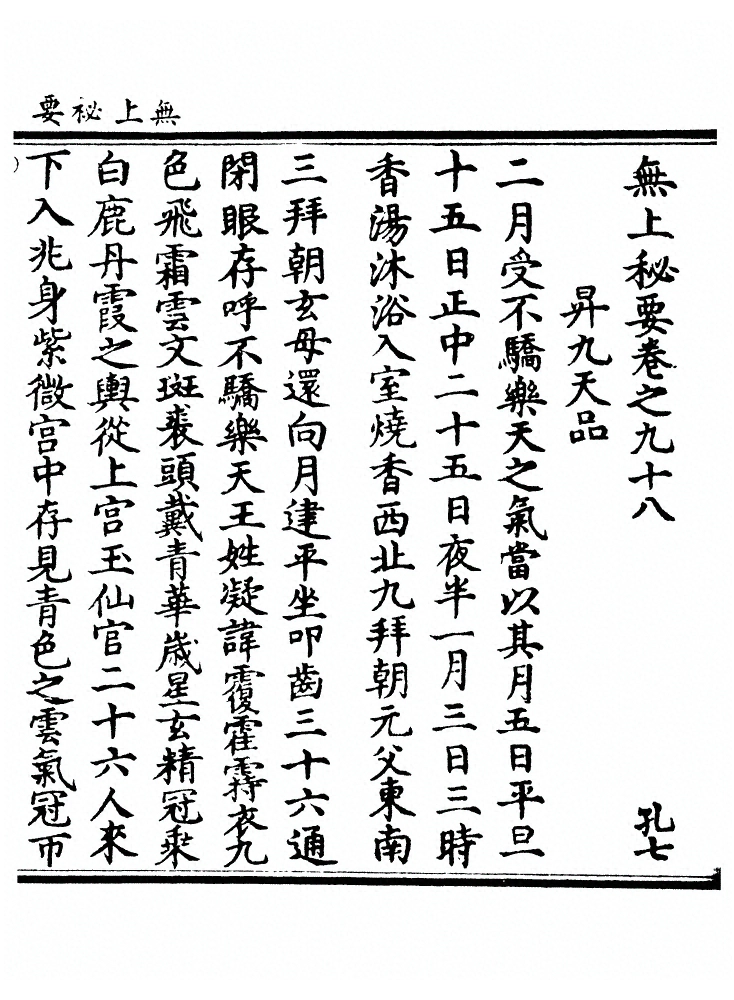 無上祕要
無上秘要卷之九十八 孔七
昇九天品
二月受不驕樂天之氣當以其月五日平旦
十五日正中二十五日夜半一月三日三時
香湯沐浴入室燒香西北九拜朝元父東南
三拜朝玄母還向月建平坐叩齒三十六通
閉眼存呼不驕樂天王姓凝諱霞霍霷衣九
色飛霜雲文斑裘頭戴青華歲星玄精冠乘
白鹿丹霞之輿從上宮玉仙官二十六人來
下入兆身紫微宮中存見青色之雲氣冠帀